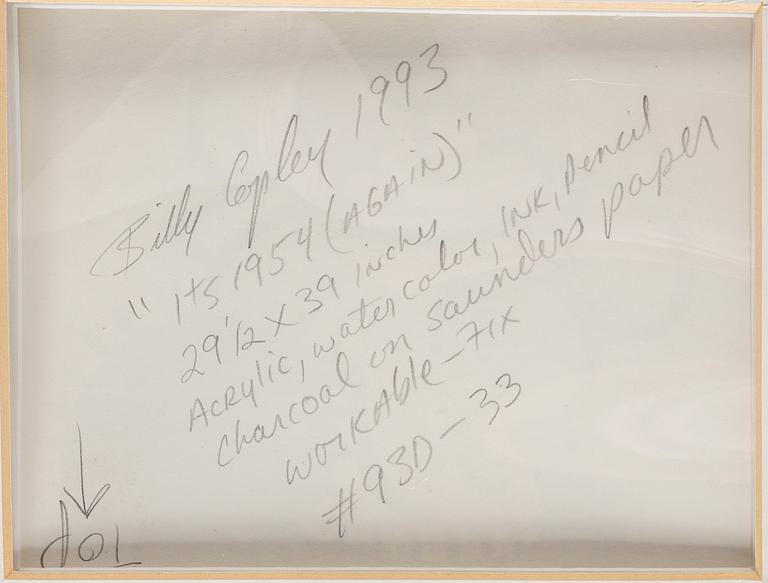 Billy Copley 1993
"Its 1954 (AGAIN)"
29 1/2 X 39 inches
Acrylic, watercolor, INK, pencil
charcoal on Saunders paper
workable-Fix
#93D-33
TOP